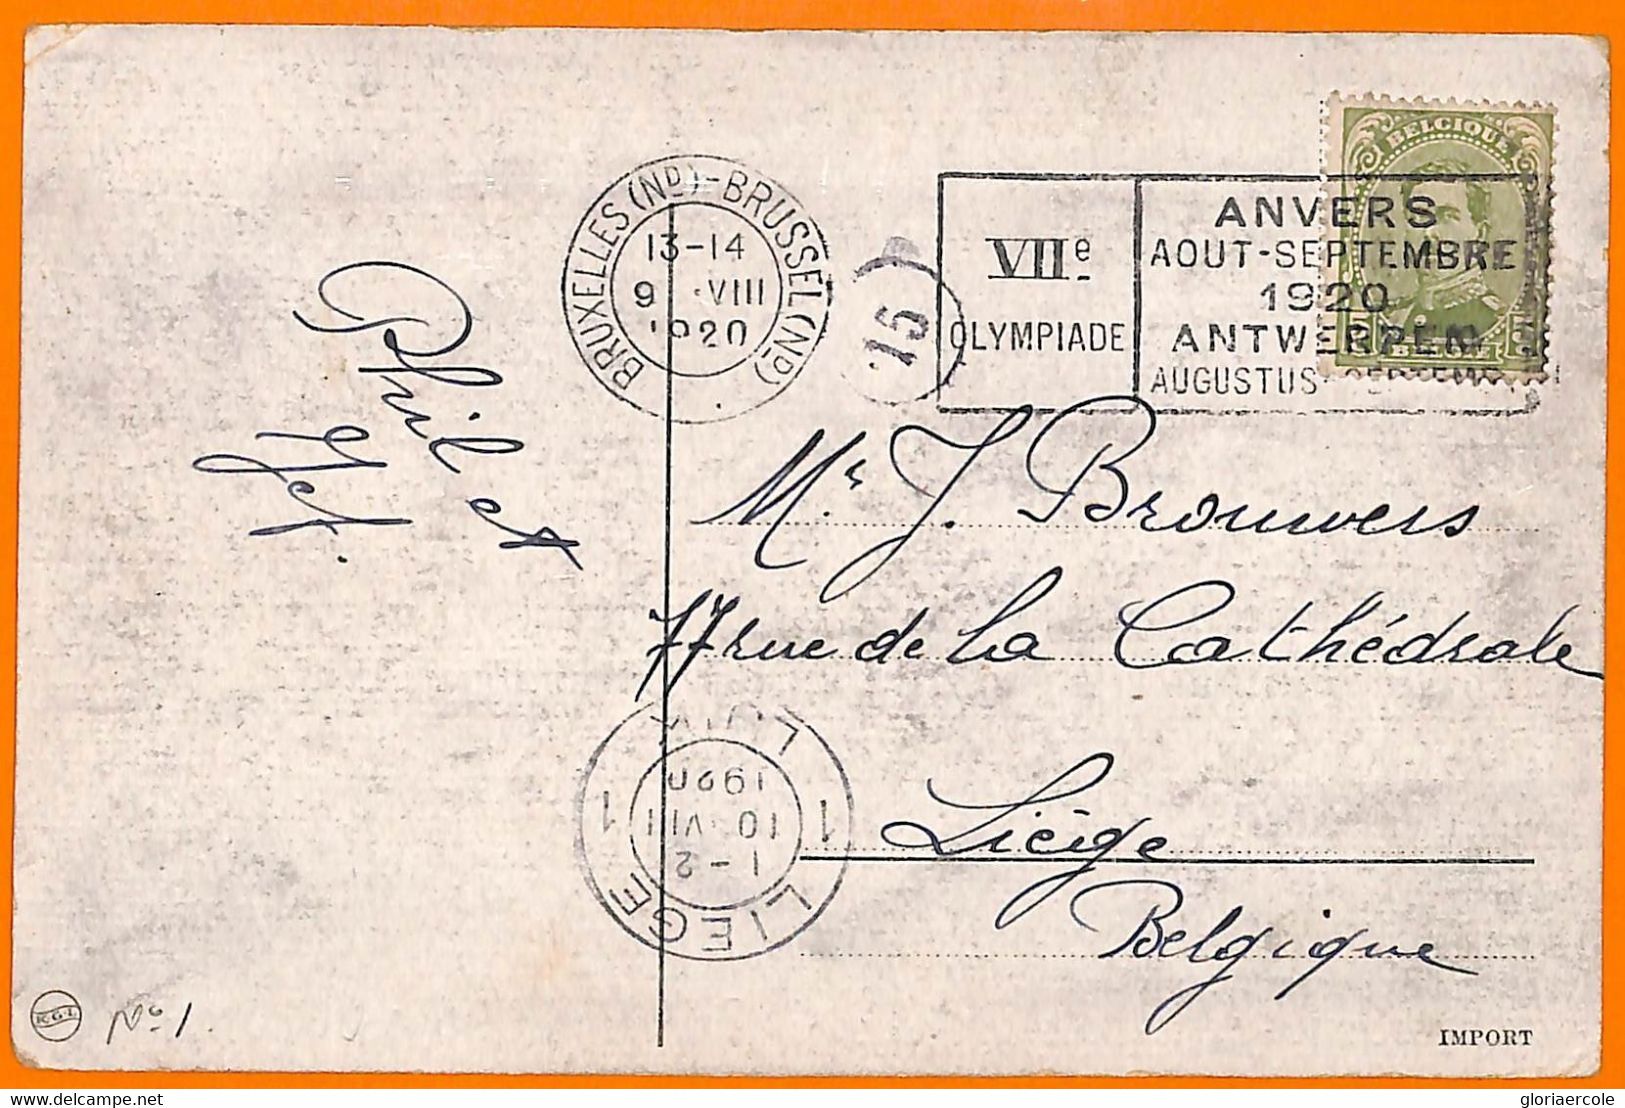 BELGIQUE
BRUXELLES (ND)-BRUSSEL (ND)
13-14
9 VIII
1920
15
VIIe
OLYMPIADE
ANVERS
AOUT-SEPTEMBRE
1920
ANTWERPEN
AUGUSTUS-SEPTEMB
Phil et
Jef.
Mr. J. Brouwers
77 rue de la Cathédrale
Liége
Belgique
LUIK
1920
10 VIII
1-2
1 1
LIEGE
No 1.
IMPORT
delcampe.net
gloriaercole